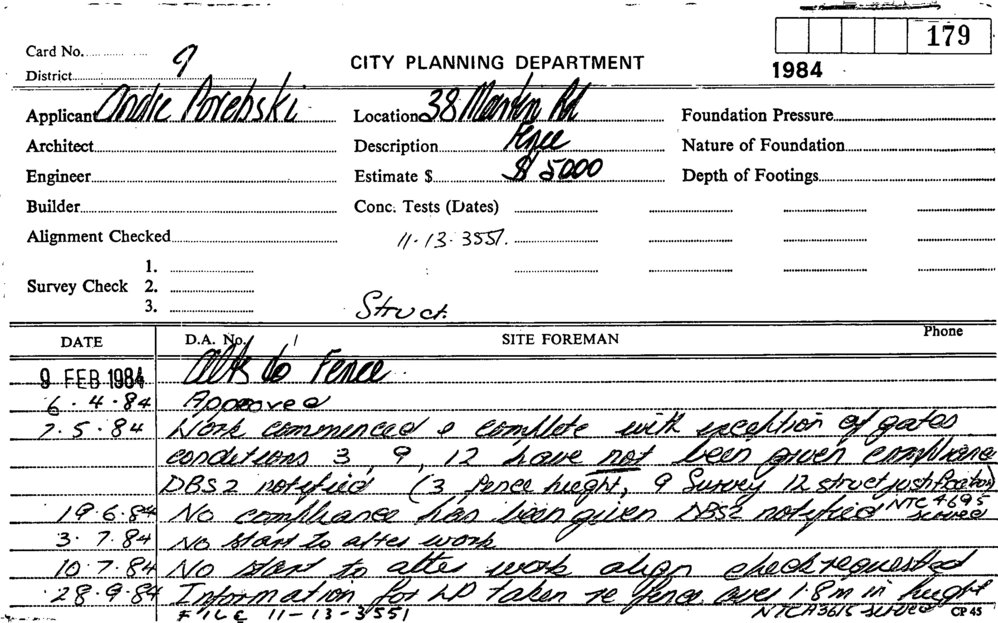 Card No.
9
District
CITY PLANNING DEPARTMENT
179
1984
Applicant Andre Porebski Location 38 Marten Rd Foundation Pressure
Architect Description Fence Nature of Foundation
Engineer Estimate $ $ 5000 Depth of Footings
Builder Conc. Tests (Dates)
Alignment Checked 11.13.3551.
1.
Survey Check 2.
3. Struct.
DATE D.A. No. SITE FOREMAN Phone
9 FEB 1984 Alts to Fence
6.4.84 Approved
7.5.84 Work commenced & complete with exception of gates
conditions 3, 9, 12 have not been given compliance
DBS2 notified (3 fence height, 9 Survey 12 struct justification)
19.6.84 No compliance has been given DBS2 notified NTC 4695 served
3.7.84 No start to alter work
10.7.84 No start to alter work align check requested
28.9.84 Information for LP taken re fence over 1.8m in height
FILE 11-13-3551 NTCA3615 served CP 45